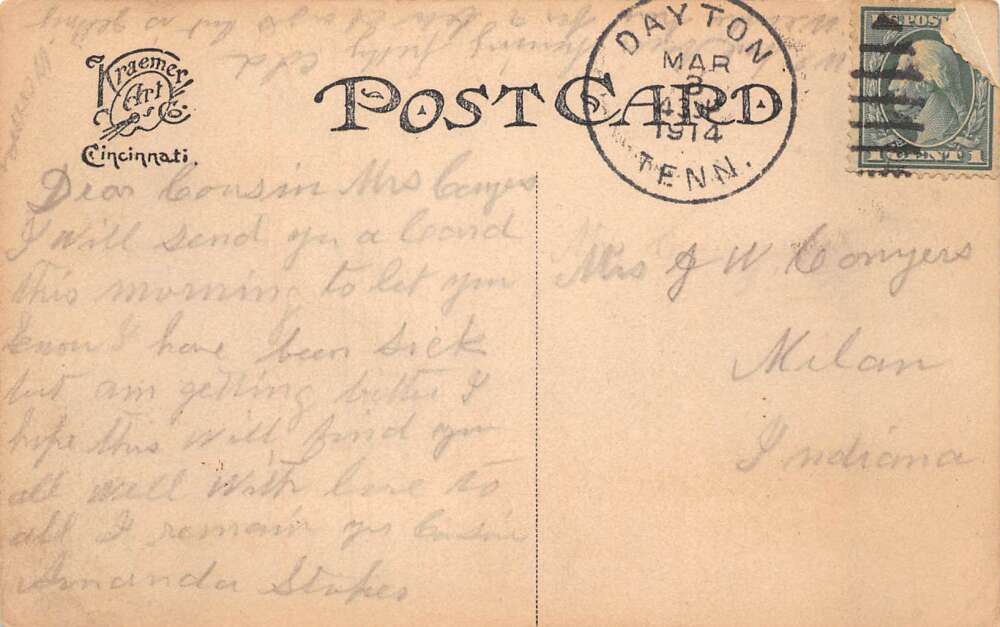 Kraemer
Art
Co
Cincinnati.
POST CARD
DAYTON
MAR
3
1914
TENN.
U.S. POST
1 CENT 1
Dear Cousin Mrs Conyers
I will send you a Card
this morning to let you
know I have been sick
but am getting better I
hope this will find you
all well with love to
all I remain yr Cousin
Amanda Stokes
Mrs J W Conyers
Milan
Indiana